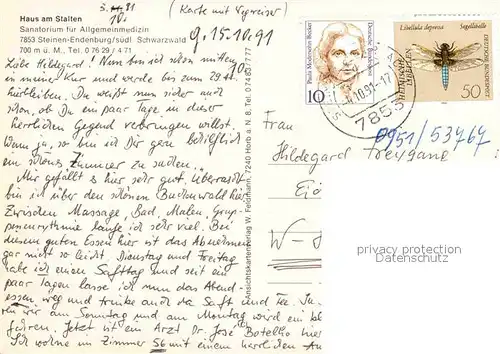 3. 10. 91
(Karte mit Vgreiser)
g. 15.10.91
Haus am Stalten
Sanatorium für Allgemeinmedizin
7853 Steinen-Endenburg/südl Schwarzwald
700 m ü. M., Tel. 0 76 29 / 4 71
Liebe Hildegard! Nun bin ich schon mitten
in meiner Kur und werde bis zum 29.
hierbleiben. Du weißt nun sicher auch
schon, ob Du ein paar Tage in dieser
herrlichen Gegend verbringen willst.
Wenn ja, so bin ich Dir gern behilflich
ein schönes Zimmer zu suchen.
Mir gefällt es hier sehr gut, überrascht
bin ich über den schönen Buchenwald hier
Zwischen Massage, Bad, Malen, Grup-
peneurythmie laufe ich sehr viel. Bei
diesem guten Essen hier ist das Abnehmen
gar nicht so leicht. Dienstag und Freitag
habe ich einen Safttag und seit ein
paar Tagen lasse ich nun das Abend-
essen weg und trinke auch da Saft und Tee.
ren wir am Sonntag und am Montag wird ein
Jetzt ist ein Arzt Dr. José Botelho hier
Ich wohne im Zimmer 56 mit einem herrlichen
Ansichtskartenverlag W. Feldmann, 7240 Horb a. N. 8, Tel. 0 74 83 / 7 77
Paula Modersohn-Becker
Deutsche Bundespost
10
Libellula depressa Segellibelle
HEIMISCHE LIBELLEN
DEUTSCHE BUNDESPOST
50
10.91-17
7853
0951/53767
Frau
Hildegard
W-
privacy protection
watermark